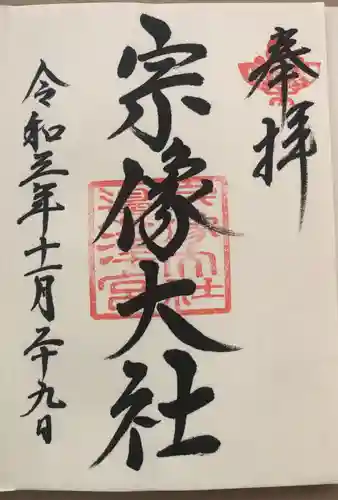 奉拝
宗像大社
令和三年十一月二十九日
宗像大社
邊津宮